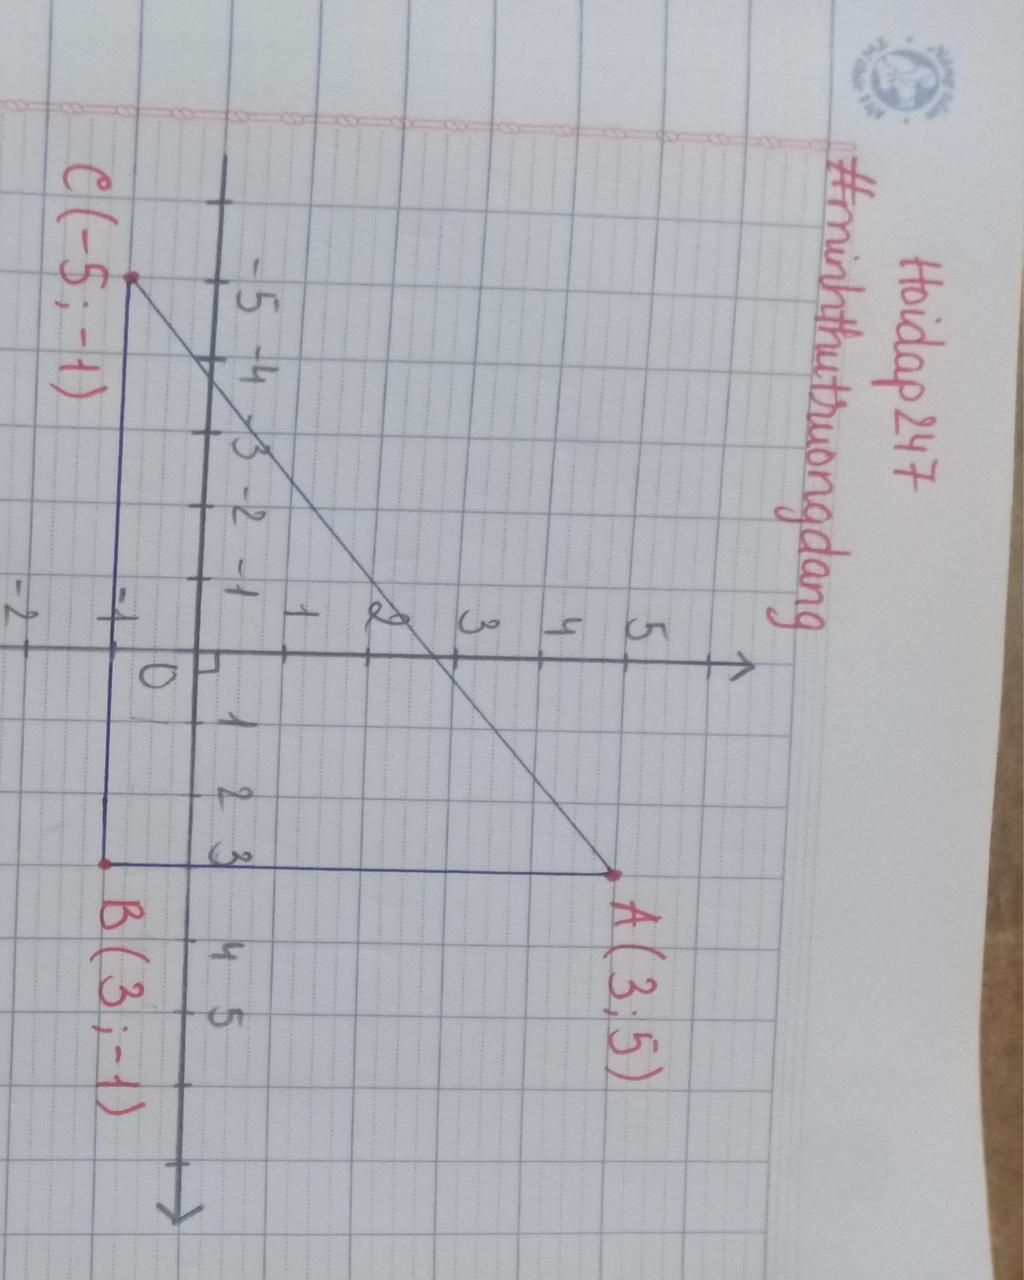 Hoidap247
#minhthutruongdang
5
4
3
2
1
-5 -4 -3 -2 -1
1 2 3 4 5
0
-1
-2
A(3;5)
B(3;-1)
C(-5;-1)